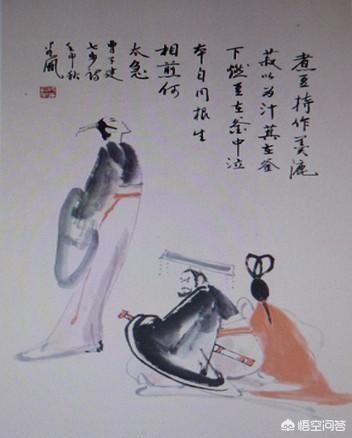 煮豆持作羹漉
菽以为汁萁在釜
下燃豆在釜中泣
本自同根生
相煎何
太急
曹子建
七步诗
壬申秋
悟空问答